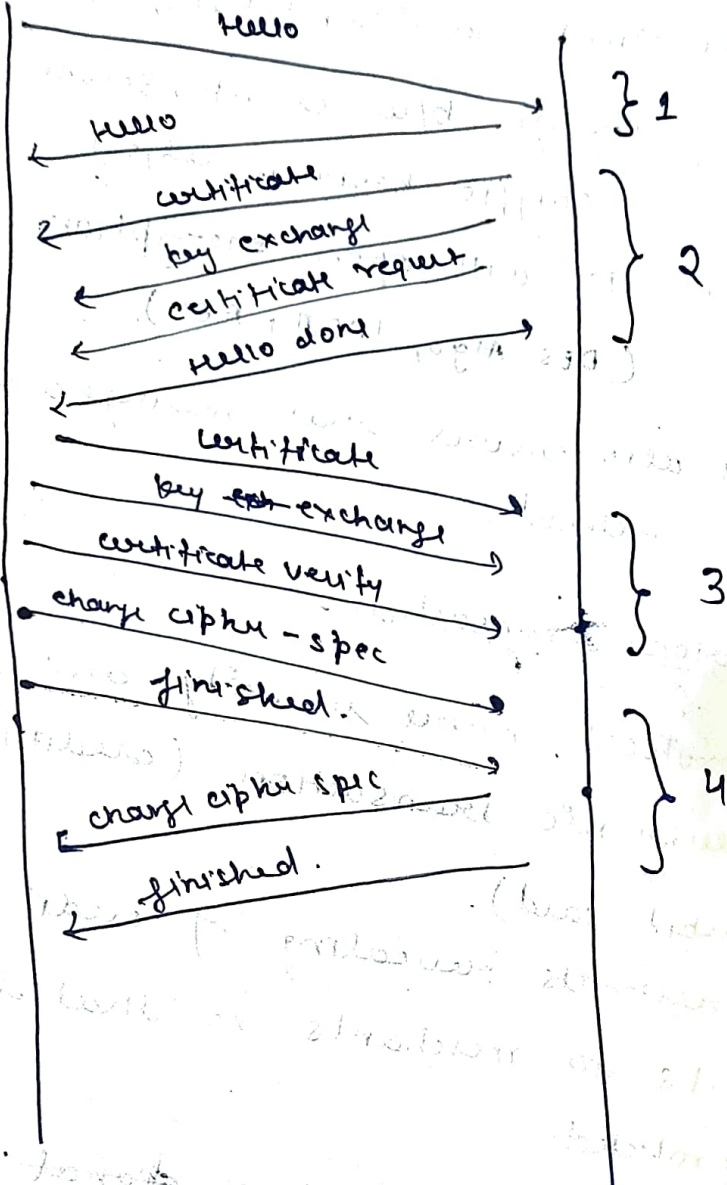 Hello
} 1
Hello
certificate
key exchange
2
certificate request
Hello done
certificate
key exchange
certificate verify
3
change cipher - spec
finished.
4
change cipher spec
finished.